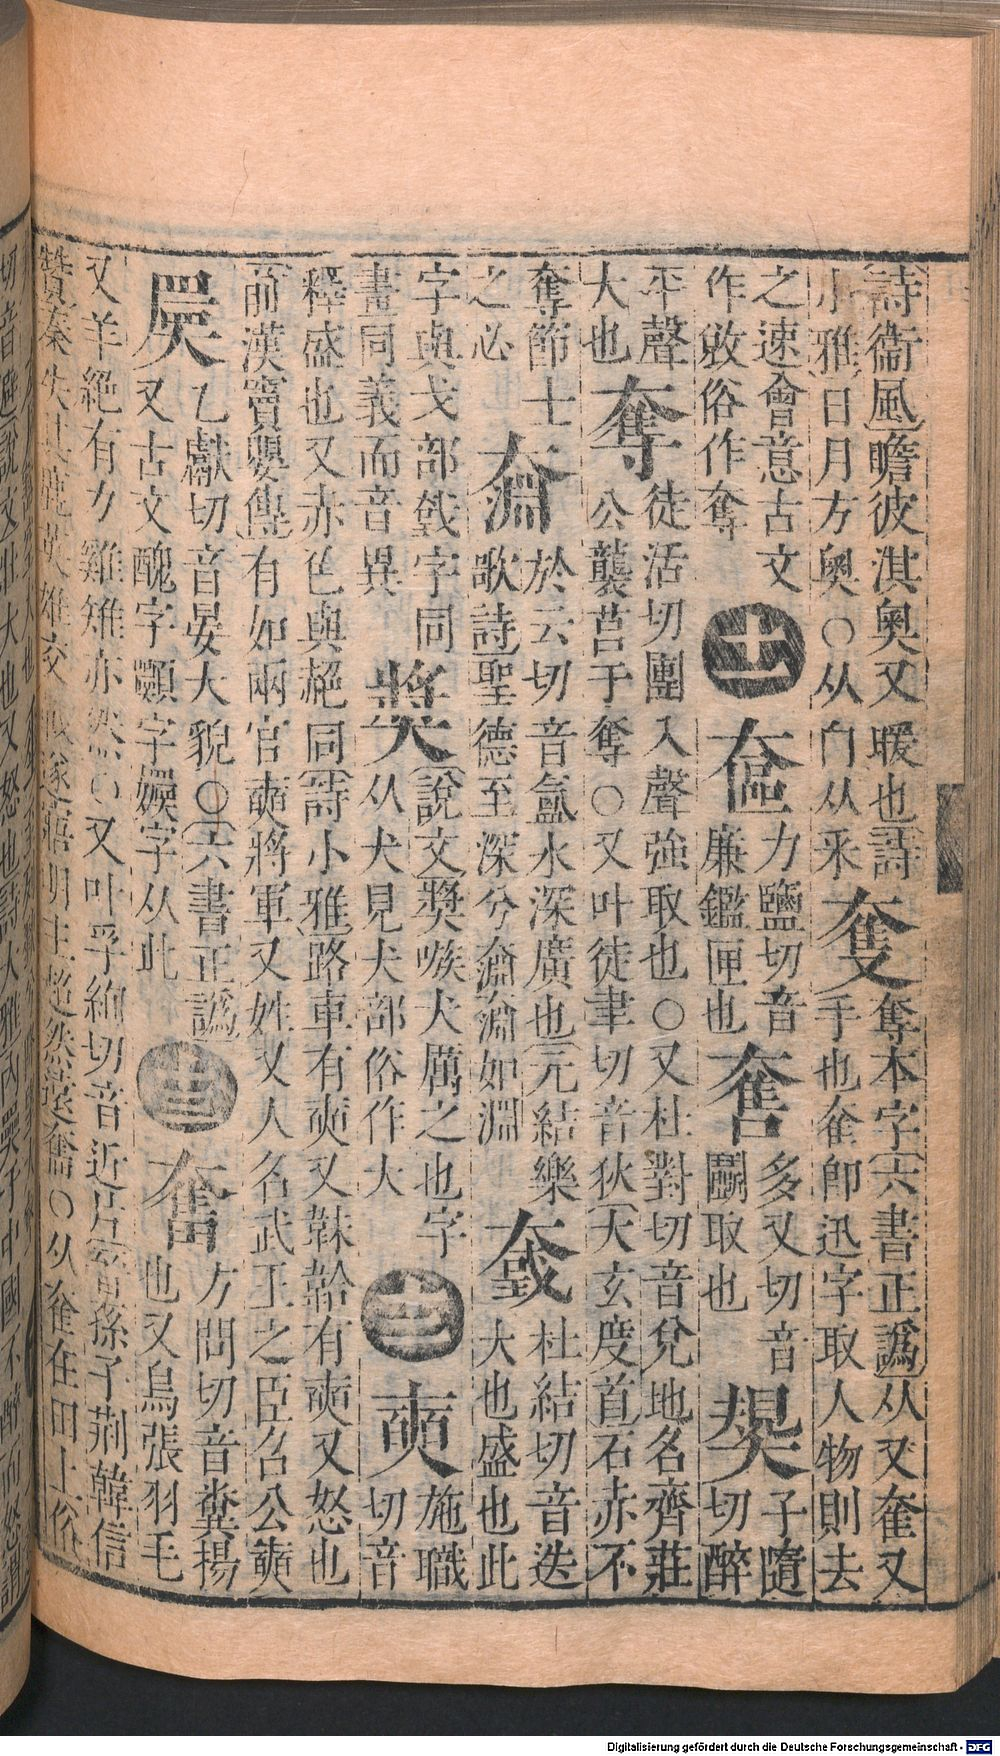 詩衞風瞻彼淇奧又暖也詩
小雅日月方奧○从㝃从釆
奪
奪本字六書正譌从又奞又
手也奞卽迅字取人物則去
之速會意古文
作敓俗作奪
十一
奩
力鹽切音
廉鑑匣也
奞
多又切音
鬭取也
子隨
切醉
平聲
大也
奪
徒活切團入聲強取也○又杜對切音兌地名齊莊
公襲莒于奪○又叶徒聿切音狄大玄度首石赤不
奪節士
之必
奫
於云切音氳水深廣也元結樂
歌詩聖德至深兮奫奫如淵
杜結切音迭
大也盛也此
字與戈部戜字同
畫同義而音異
獎
說文獎嗾犬厲之也字
从犬見犬部俗作大
十二
奭
施職
切音
釋盛也又赤色與赩同詩小雅路車有奭又韎韐有奭又怒也
前漢竇嬰傳有如兩宮奭將軍又姓又人名武王之臣召公奭
乙獻切音宴大貌○六書正譌
又古文醜字顯字嬽字从此
十三
奮
方問切音糞揚
也又鳥張羽毛
又羊絕有力雞雉亦然○又叶孚絢切音近片晉孫子荆韓信
贊秦失其鹿英雄交戰遂寤明主超然䕫奮○从奞在田上俗
Digitalisierung gefördert durch die Deutsche Forschungsgemeinschaft - DFG